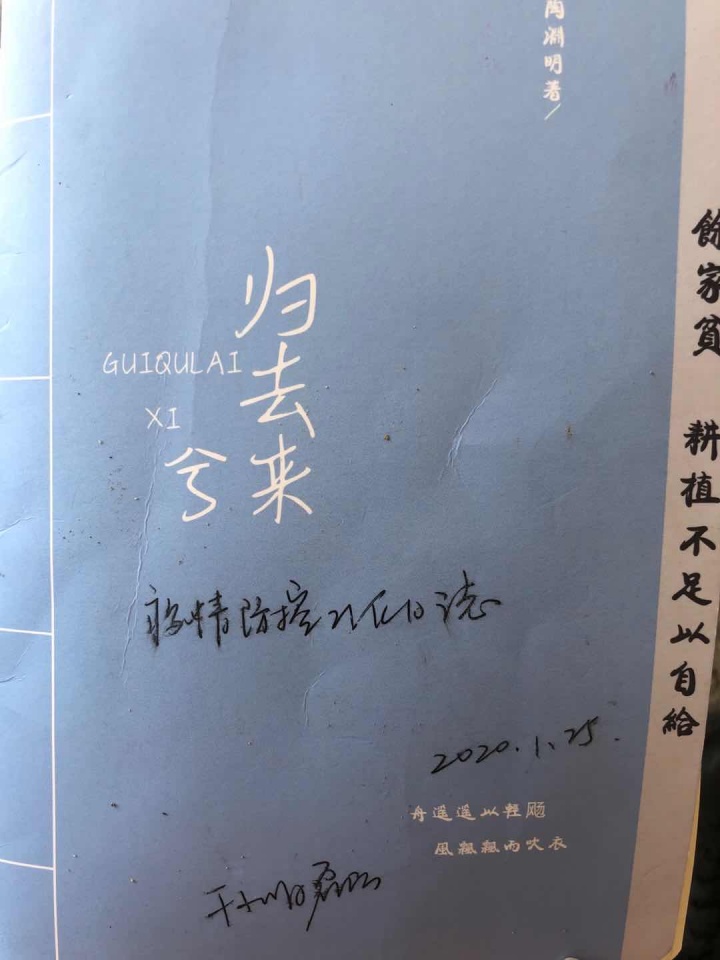 陶淵明著/
餘家貧 耕植不足以自給
归去来
兮
GUIQULAI
XI
疫情防控工作日志
2020.1.25.
舟遥遥以輕飏
風飄飄而吹衣